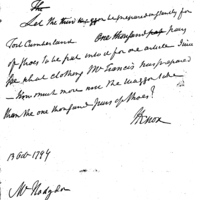 The
Let the third waggon be prepared instantly for
Fort Cumberland One thousand pair pairs
of Shoes to be put into it for one article
see what clothing Mr Francis has prepared
– How much more will the waggon take
than the one thousand pairs of Shoes?
HKnox
13 Octr. 1794
Mr Hodgdon